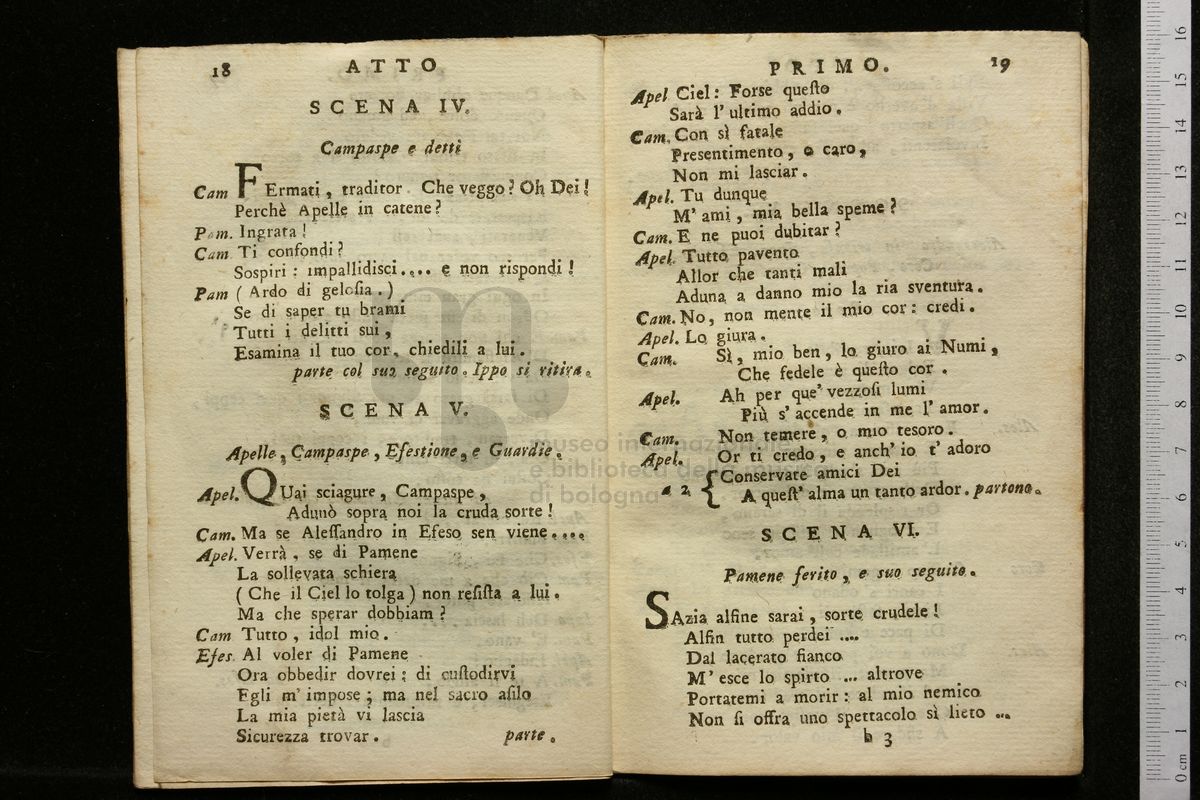 18 ATTO
SCENA IV.
Campaspe e detti
Cam FErmati, traditor. Che veggo? Oh Dei!
Perchè Apelle in catene?
Pam. Ingrata!
Cam Ti confondi?
Sospiri: impallidisci.... e non rispondi!
Pam (Ardo di gelosia.)
Se di saper tu brami
Tutti i delitti sui,
Esamina il tuo cor, chiedili a lui.
parte col suo seguito. Ippo si ritira.
SCENA V.
Apelle, Campaspe, Efestione, e Guardie.
Apel. QUai sciagure, Campaspe,
Adunò sopra noi la cruda sorte!
Cam. Ma se Alessandro in Efeso sen viene....
Apel. Verrà, se di Pamene
La sollevata schiera
(Che il Ciel lo tolga) non resista a lui.
Ma che sperar dobbiam?
Cam Tutto, idol mio.
Efes. Al voler di Pamene
Ora obbedir dovrei: di custodirvi
Egli m' impose; ma nel sacro asilo
La mia pietà vi lascia
Sicurezza trovar. parte.
PRIMO. 19
Apel Ciel: Forse questo
Sarà l' ultimo addio.
Cam. Con sì fatale
Presentimento, o caro,
Non mi lasciar.
Apel. Tu dunque
M' ami, mia bella speme?
Cam. E ne puoi dubitar?
Apel. Tutto pavento
Allor che tanti mali
Aduna a danno mio la ria sventura.
Cam. No, non mente il mio cor: credi.
Apel. Lo giura.
Cam. Sì, mio ben, lo giuro ai Numi,
Che fedele è questo cor.
Apel. Ah per que' vezzosi lumi
Più s' accende in me l' amor.
Cam. Non temere, o mio tesoro.
Apel. Or ti credo, e anch' io t' adoro
a 2 { Conservate amici Dei
A quest' alma un tanto ardor. partono.
SCENA VI.
Pamene ferito, e suo seguito.
SAzia alfine sarai, sorte crudele!
Alfin tutto perdei ....
Dal lacerato fianco
M' esce lo spirto ... altrove
Portatemi a morir: al mio nemico
Non si offra uno spettacolo sì lieto ...
b 3
museo internazionale
e biblioteca della musica
di bologna
0 cm 1 2 3 4 5 6 7 8 9 10 11 12 13 14 15 16